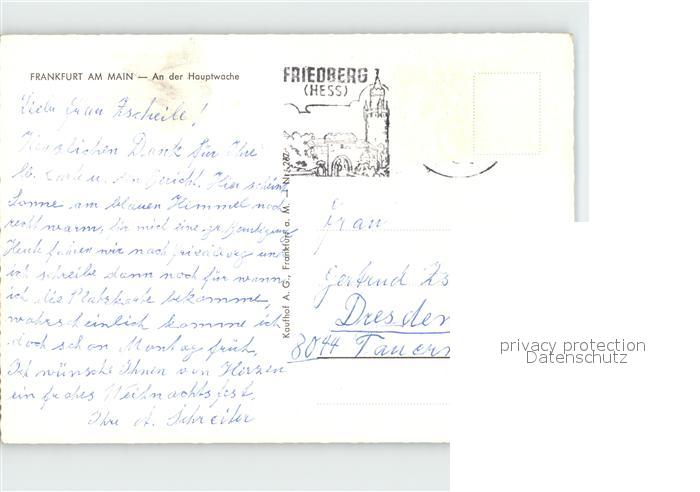 FRANKFURT AM MAIN — An der Hauptwache
FRIEDBERG
(HESS)
Frau Zscheile!
Herzlichen Dank für Ihre
lb. Karte u. den Hier scheint
Sonne am blauen Himmel noch
recht warm, für mich eine
Heute fahren wir nach Friedberg und
ich schreibe dann noch für wann
ich die Platzkarte bekomme,
wahrscheinlich komme ich
doch schon Montag früh.
Ich wünsche Ihnen von Herzen
ein frohes Weihnachtsfest.
Ihre A. Schreiter
Kaufhof A. G., Frankfurt a. M. — Nr.
Frau
Gertrud Zs
Dresden
8044 Tauern
privacy protection
Datenschutz